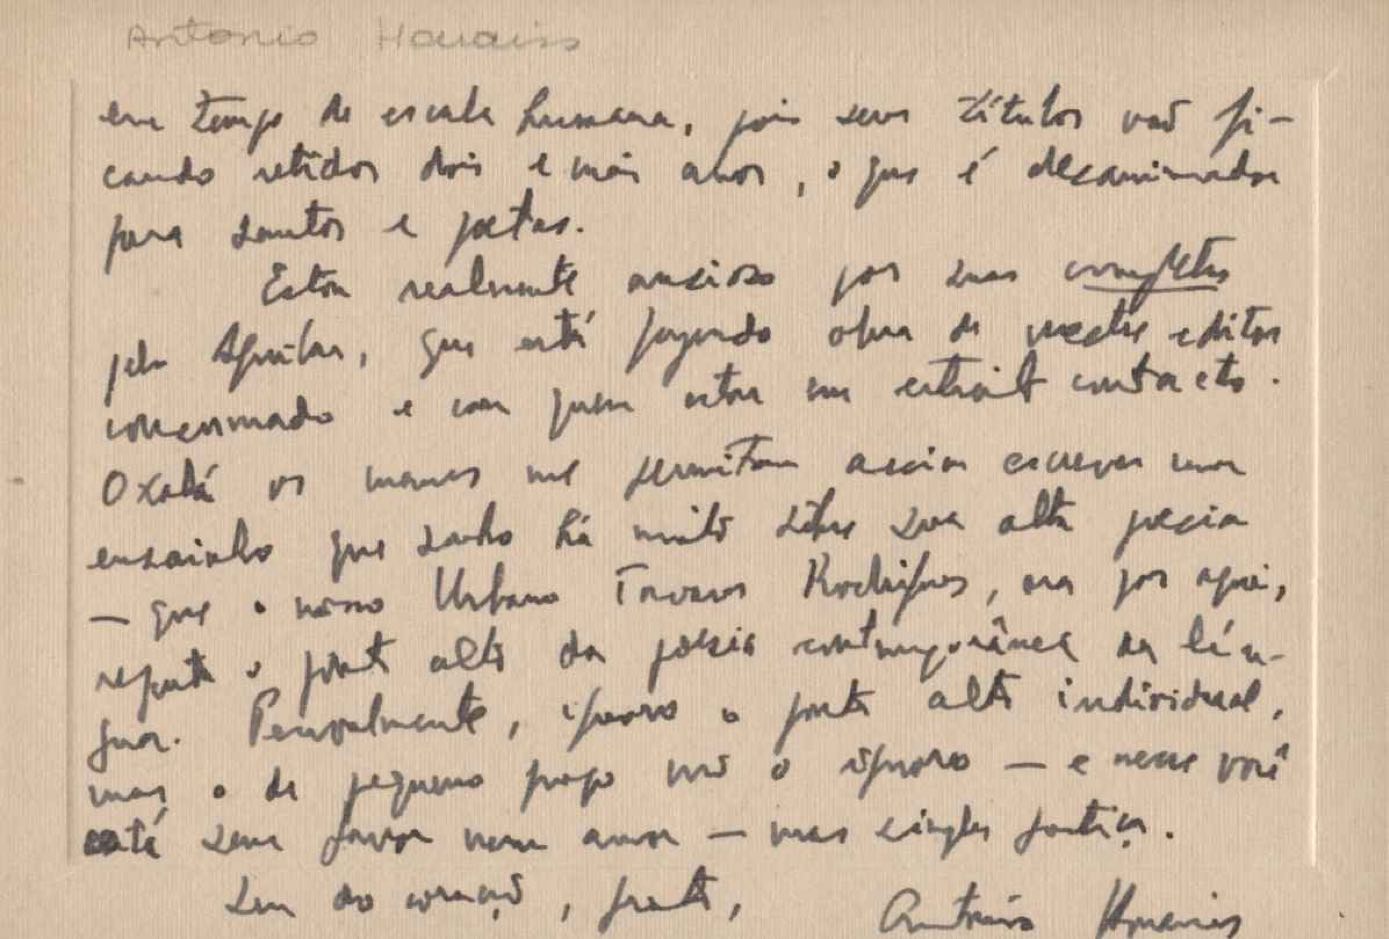 Antonio Houaiss
em tempo de escala humana, pois seus títulos vão fi-
cando retidos dois e mais anos, o que é desanimador
para santos e poetas.
Estou realmente ansioso por suas completas
pela Aguilar, que está fazendo obra de mestre editor
consumado e com quem estou em estreito contacto.
Oxalá os manes me permitam assim escrever um
ensaiolo que sonho há muito sôbre sua alta poesia
— que o nosso Urbano Tavares Rodrigues, ora por aqui,
reputa o ponto alto da poesia contemporânea da lín-
gua. Pessoalmente, ignoro o ponto alto individual,
mas o de pequeno grupo não o ignoro — e nesse você
está sem favor nem amor — mas simples justiça.
Seu do coração, grato,
Antônio Houaiss